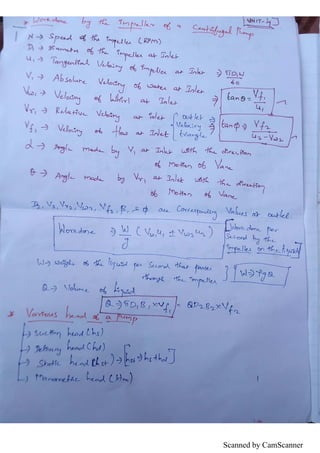 UNIT-4
* Workdone by the Impeller of a Centrifugal Pump
N → Speed of the Impeller (RPM)
D₁ → Diameter of the impeller at Inlet
u₁ → Tangential Velocity of Impeller at Inlet ⇒ πD₁N/60
V₁ → Absolute Velocity of water at Inlet
Vw₁ → Velocity of whirl at Inlet ⇒ tanθ = Vf₁/u₁
Vr₁ → Relative Velocity at inlet { outlet Velocity triangle
Vf₁ → Velocity of flow at Inlet ⇒ tanΦ ⇒ Vf₂/u₂-Vw₂
α → Angle made by V₁ at Inlet with the direction
of Motion of Vane
θ → Angle made by Vr₁ at Inlet with the direction
of Motion of Vane
D₂, V₂, Vr₂, Vw₂, Vf₂, β, & Φ are Corresponding Values at outlet.
Workdone ⇒ W/g (Vw₁u₁ ± Vw₂u₂) [Workdone per
Second by the
Impeller on the liquid]
W → weight of the liquid per Second that passes
through the impeller } W ⇒ ρgQ
Q → Volume of liquid
Q ⇒ πD₁B₁×Vf₁ = πD₂B₂×Vf₂
* Various head of a Pump
→ Suction head (hs)
→ Delivery head (hd)
→ Static head (hst) → [hst ⇒ hs+hd]
→ Manometric head (Hm)
1
Scanned by CamScanner